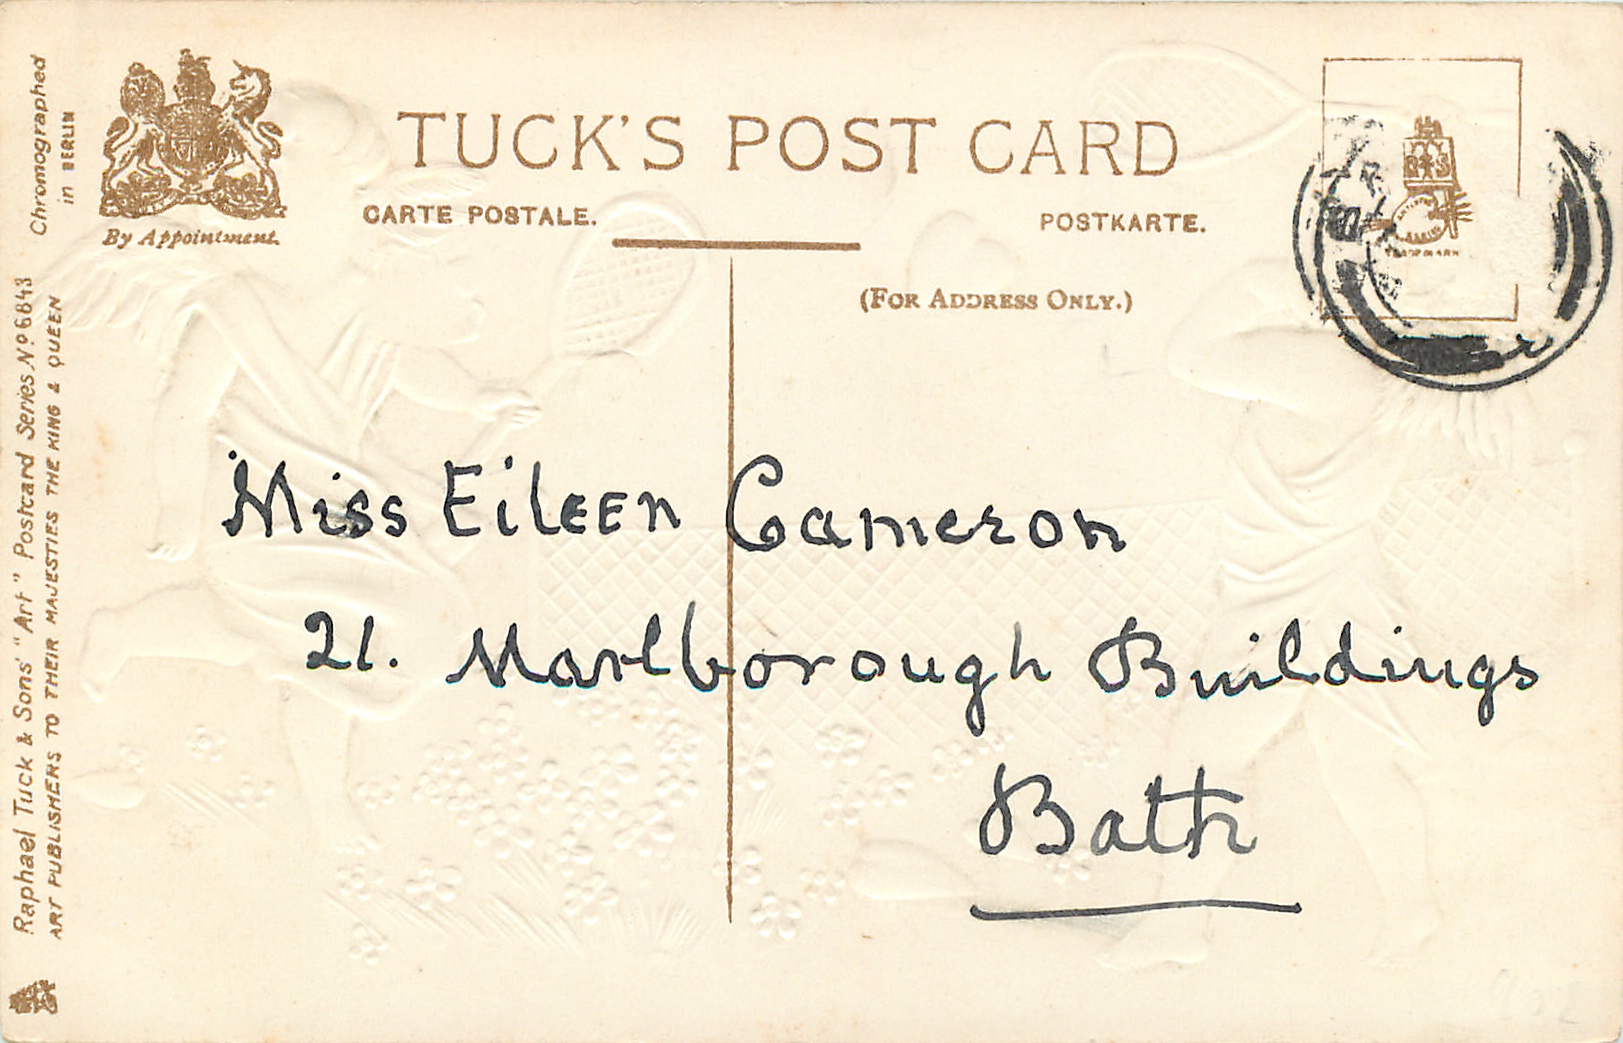 Chromographed
in BERLIN
By Appointment.
TUCK'S POST CARD
CARTE POSTALE.
POSTKARTE.
(FOR ADDRESS ONLY.)
TRADE MARK
Raphael Tuck & Sons' "Art" Postcard Series Nº 6843
ART PUBLISHERS TO THEIR MAJESTIES THE KING & QUEEN
Miss Eileen Cameron
21. Marlborough Buildings
Bath